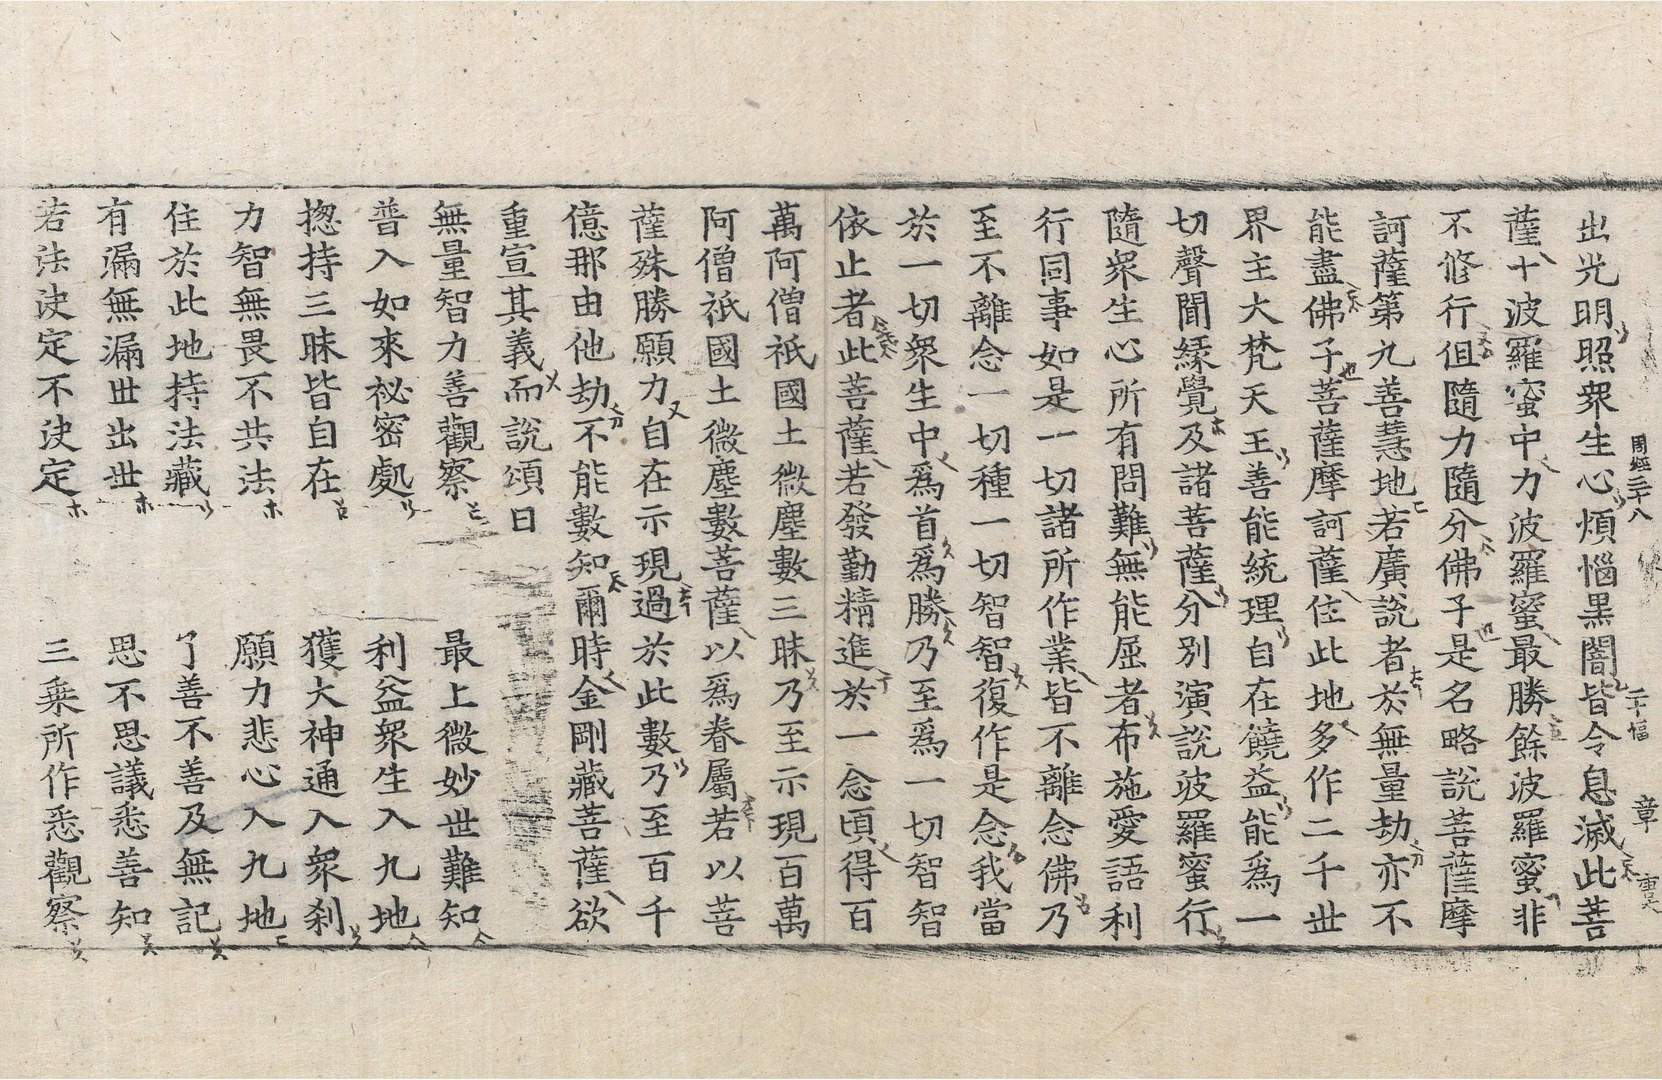 周經三十八　二十幅　章
出光明照衆生心煩惱黒闇皆令息滅此菩
薩十波羅蜜中力波羅蜜最勝餘波羅蜜非
不修行但隨力隨分佛子是名略說菩薩摩
訶薩第九善慧地若廣說者於無量劫亦不
能盡佛子菩薩摩訶薩住此地多作二千世
界主大梵天王善能統理自在饒益能爲一
切聲聞緣覺及諸菩薩分別演說波羅蜜行
隨衆生心所有問難無能屈者布施愛語利
行同事如是一切諸所作業皆不離念佛乃
至不離念一切種一切智智復作是念我當
於一切衆生中爲首爲勝乃至爲一切智智
依止者此菩薩若發勤精進於一念頃得百
萬阿僧祇國土微塵數三昧乃至示現百萬
阿僧祇國土微塵數菩薩以爲眷屬若以菩
薩殊勝願力自在示現過於此數乃至百千
億那由他劫不能數知爾時金剛藏菩薩欲
重宣其義而說頌曰
無量智力善觀察　最上微妙世難知
普入如來祕密處　利益衆生入九地
揔持三昧皆自在　獲大神通入衆刹
力智無畏不共法　願力悲心入九地
住於此地持法藏　了善不善及無記
有漏無漏世出世　思不思議悉善知
若法決定不決定　三乗所作悉觀察